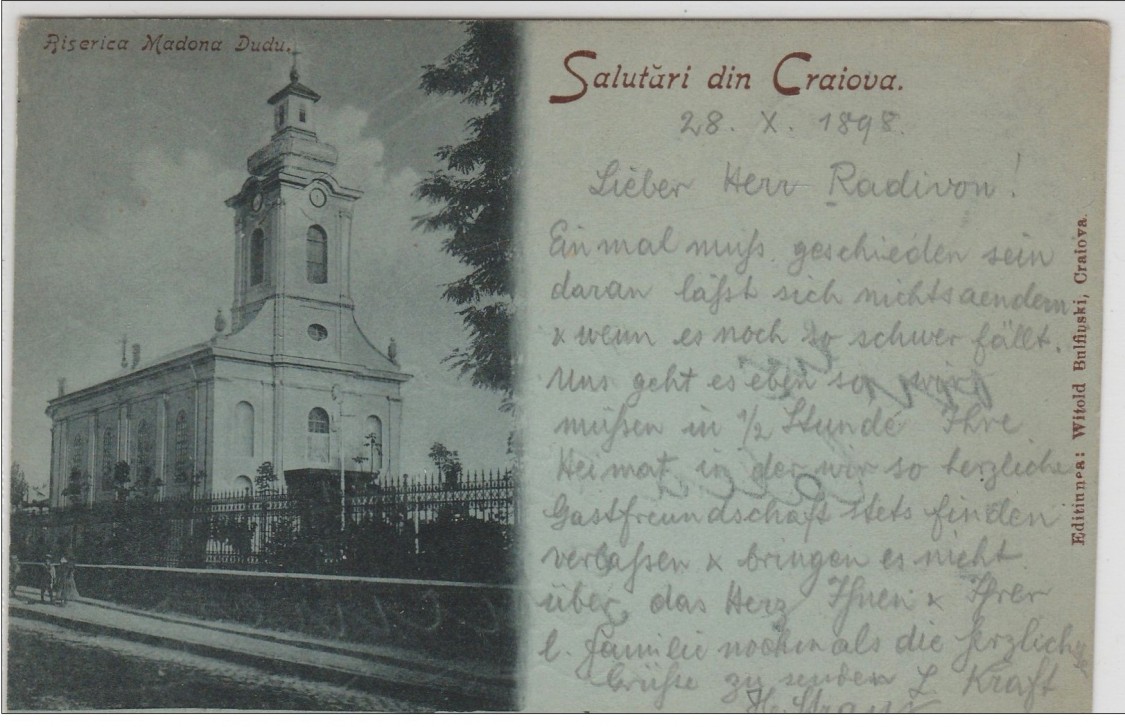 Biserica Madona Dudu.
Salutări din Craiova.
28. X. 1898.
Lieber Herr Radivon!
Einmal muß geschieden sein
daran läßt sich nichts aendern
& wenn es noch so schwer fällt.
Uns geht es eben so, wir
müßen in 1/2 Stunde Ihre
Heimat, in der wir so herzliche
Gastfreundschaft stets finden
verlaßen & bringen es nicht
über, das Herz Ihnen & Ihrer
l. Familie nochmals die herzlich
Grüße zu senden L Kraft
H. Straus
Editiunea: Witold Bulfinski, Craiova.